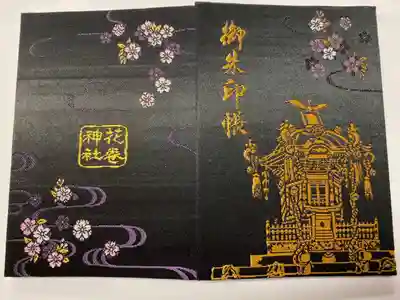 御朱印帳
花巻
神社